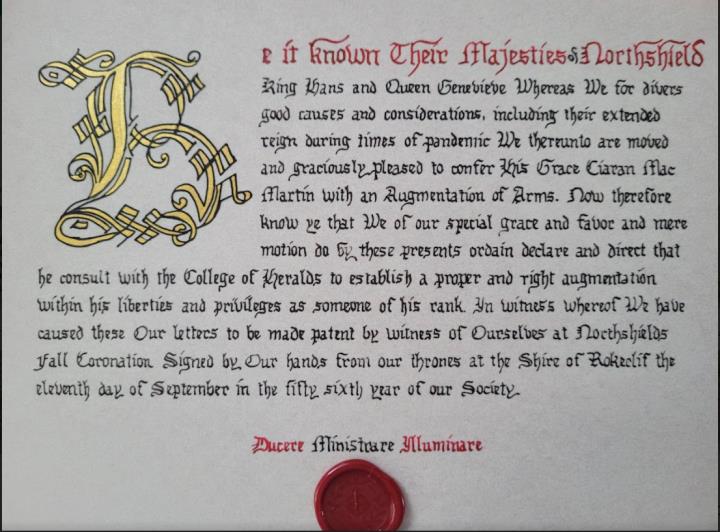 Be it known Their Majesties of Northshield
King Hans and Queen Genevieve Whereas We for divers
good causes and considerations, including their extended
reign during times of pandemic We thereunto are moved
and graciously pleased to confer His Grace Ciaran Mac
Martin with an Augmentation of Arms. Now therefore
know ye that We of our special grace and favor and mere
motion do by these presents ordain declare and direct that
he consult with the College of Heralds to establish a proper and right augmentation
within his liberties and privileges as someone of his rank. In witness whereof We have
caused these Our letters to be made patent by witness of Ourselves at Northshields
Fall Coronation. Signed by Our hands from our thrones at the Shire of Rokeclif the
eleventh day of September in the fifty sixth year of our Society.
Ducere Ministrare Illuminare